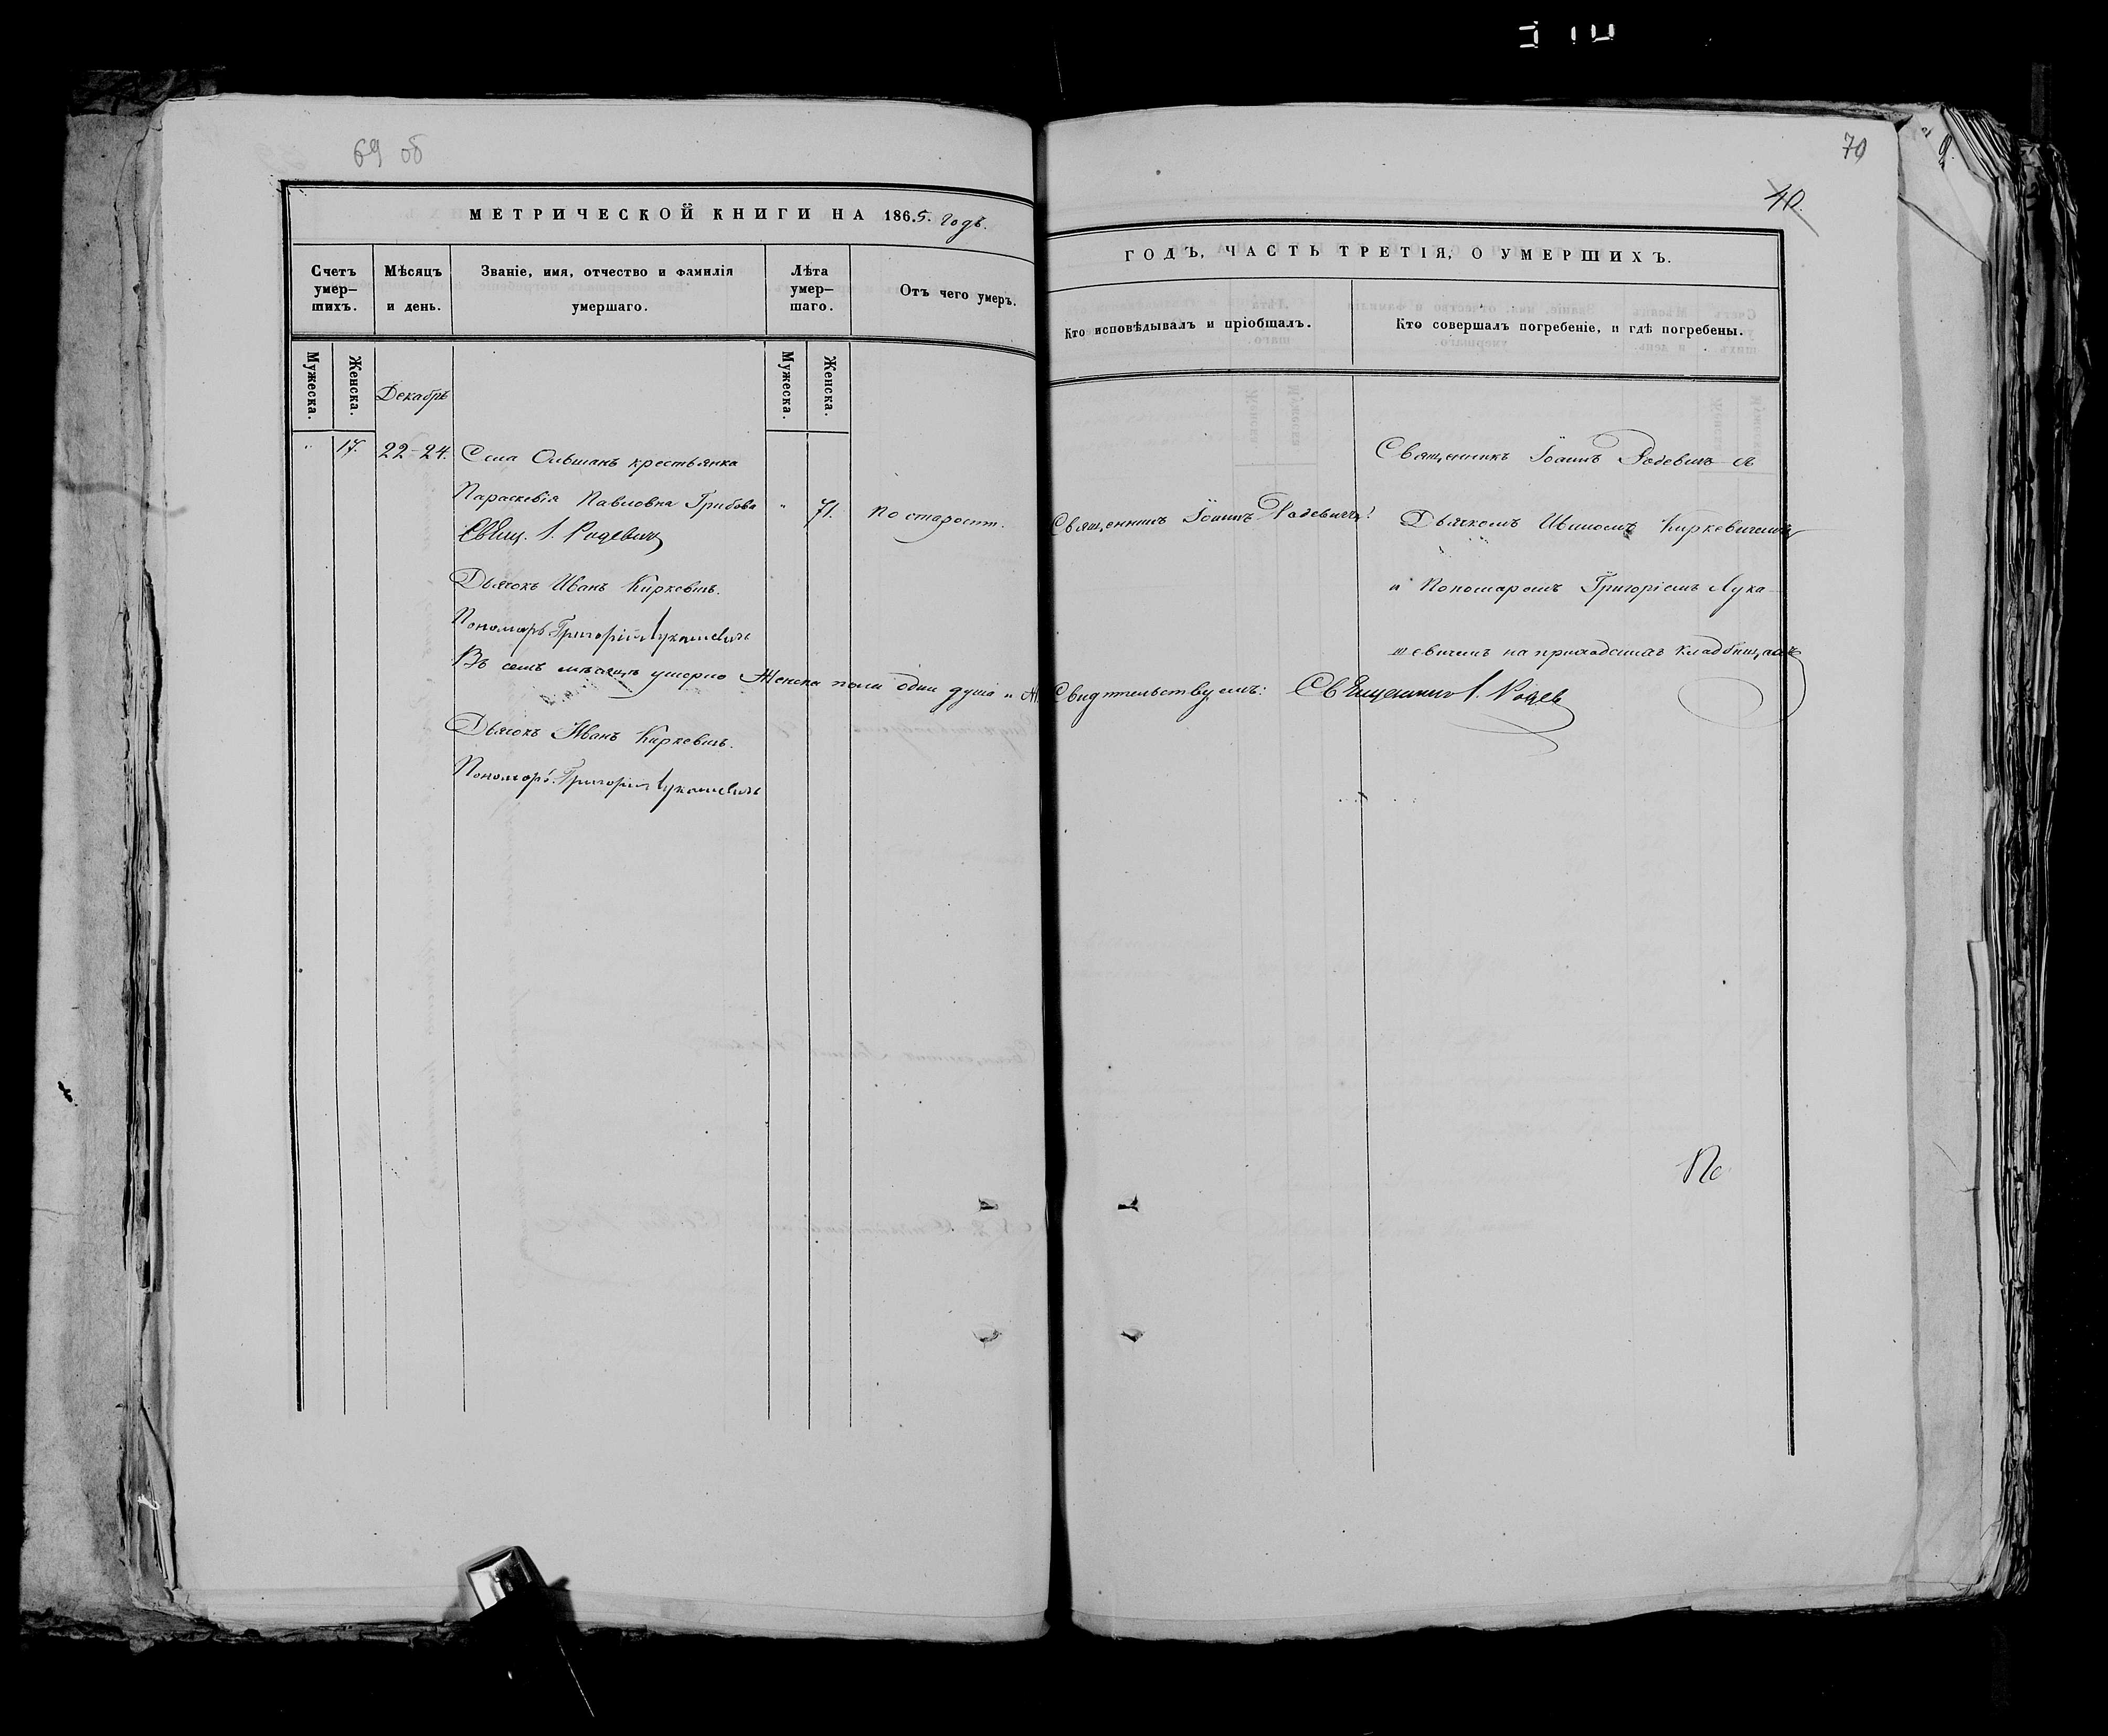 69 об
МЕТРИЧЕСКОЙ КНИГИ НА 1865. Годъ.
Счетъ умер-
шихъ.
Мѣсяцъ
и день.
Званіе, имя, отчество и фамилія
умершаго.
Лѣта
умер-
шаго.
Отъ чего умеръ.
Мужеска.
Женска.
Декабрь
Мужеска.
Женска.
" 17. 22-24. Села Ольшанъ крестьянка
Параскевія Павловна Грибова " 71. По старости.
Свящ. І. Родевичъ
Дьячокъ Иванъ Киркевичъ.
Пономарь Григорій Лукашевичъ
Въ семъ мѣсяцѣ умерло Женска пола одна душа
Дьячокъ Иванъ Киркевичъ.
Пономарь Григорій Лукашевичъ
70
40.
ГОДЪ, ЧАСТЬ ТРЕТІЯ, О УМЕРШИХЪ.
Кто исповѣдывалъ и пріобщалъ.
Кто совершалъ погребеніе, и гдѣ погребены.
Священникъ Іоаннъ Родевичъ съ
Священникъ Іоаннъ Родевичъ.
Дьячкомъ Иваномъ Киркевичемъ
и Пономаремъ Григоріемъ Лука-
шевичемъ на приходскихъ кладбищахъ
Свидѣтельствуемъ: Священникъ І. Родев
По